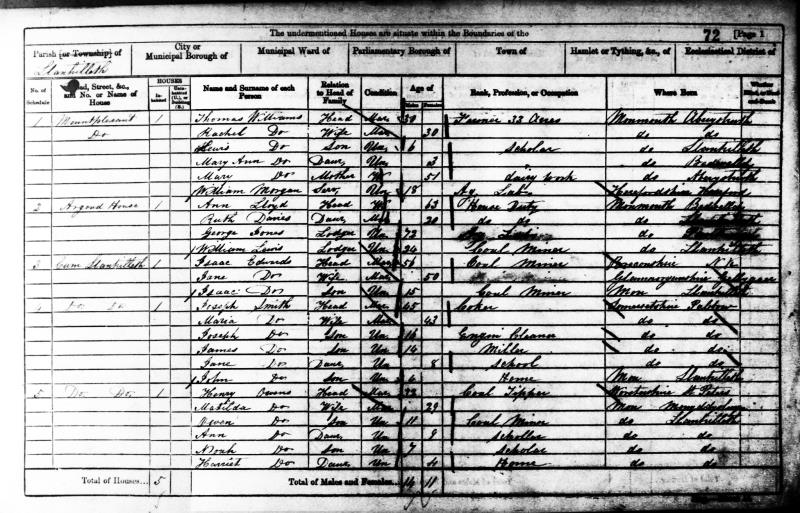 The undermentioned Houses are situate within the Boundaries of the 72 [Page 1
Parish [or Township] of City or Municipal Borough of Municipal Ward of Parliamentary Borough of Town of Hamlet or Tything, &c., of Ecclesiastical District of
Llanhilleth
No. of Schedule Road, Street, &c., and No. or Name of House HOUSES Inhabited Uninhabited (U.), or Building (B.) Name and Surname of each Person Relation to Head of Family Condition Age of Males Females Rank, Profession, or Occupation Where Born Whether Blind, or Deaf-and-Dumb
1 Mountpleasant 1 Thomas Williams Head Mar 30 Farmer 33 Acres Monmouth Aberystruth
Do Rachel Do Wife Mar 30 do do
Lewis Do Son Un 6 Scholar do Llanhilleth
Mary Ann Do Daur Un 3 do Bedwellty
Mary Do Mother W 51 dairy work do Aberystruth
William Morgan Serv Un 18 Ag Lab Herefordshire
2 Argoed House 1 Ann Lloyd Head W 63 House Duty Monmouth Bedwellty
Ruth Davies Daur Mar 20 do do do
George Jones Lodger Un 72 do
William Lewis Lodger Un 24 Coal Miner do Llanhilleth
3 Cwm Llanhilleth 1 Isaac Edwards Head Mar 56 Coal Miner Breconshire N.K.
Jane Do Wife Mar 50 Glamorganshire Gelligaer
Isaac Do Son Un 15 Coal Miner Mon Llanhilleth
4 Do Do 1 Joseph Smith Head Mar 45 Coker Somersetshire
Maria Do Wife Mar 43 do do
Joseph Do Son Un 16 Engin Cleaner do do
James Do Son Un 14 Miller do do
Jane Do Daur Un 8 School do do
John Do Son Un 4 Home Mon Llanhilleth
5 Do Do 1 Henry Owens Head Mar 33 Coal Tipper St Peters
Matilda Do Wife Mar 29 Mon
Owen Do Son Un 11 Coal Miner do Llanhilleth
Ann Do Daur Un 9 Schollar do do
Noah Do Son Un 7 Scholar do do
Harriet Do Daur Un 4 Home do do
Total of Houses... 5 Total of Males and Females... 14 11